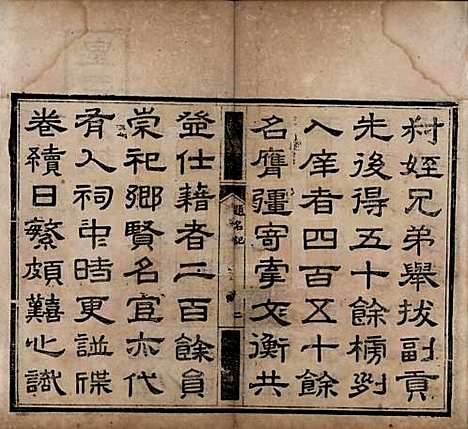 村姪兄弟舉拔副貢
先後得五十餘榜列
入庠者四百五十餘
名膺疆寄掌文衡共
題名記
二
益仕籍者二百餘員
崇祀鄉賢名宦亦代
有入祠中時更譜牒
卷續日繁頗心識